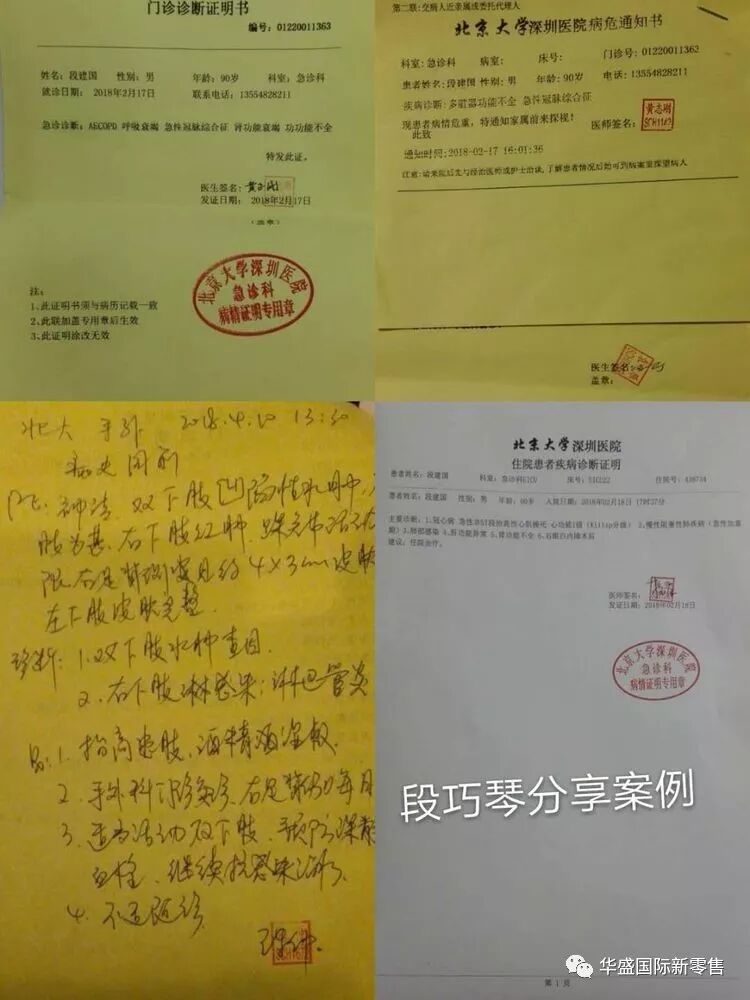 门诊诊断证明书
编号：01220011363
姓名：段建国 性别：男 年龄：90岁 科室：急诊科
就诊日期： 2018年2月17日 联系电话：13554828211
急诊诊断：AECOPD 呼吸衰竭 急性冠脉综合征 肾功能衰竭 功功能不全
特发此证。
医生签名：
发证日期： 2018年2月17日
（盖章）
北京大学深圳医院
急诊科
病情证明专用章
注：
1、此证明书须与病历记载一致
2、此联加盖专用章后生效
3、此证明涂改无效
第二联：交病人近亲属或委托代理人
北京大学深圳医院病危通知书
科室：急诊科 病室： 床号： 门诊号：01220011363
患者姓名：段建国 性别：男 年龄：90岁 电话：13554828211
疾病诊断：多脏器功能不全 急性冠脉综合征
现患者病情危重，特通知家属前来探视！
此致
医师签名：
黄志刚
通知时间：2018-02-17 16:01:36
注意：请来院后先与经治医师或护士洽谈，了解患者情况后始可到病室探望病人
医生签名：
盖章：
北大 手外 2018.4.10 13:30
病史同前
双下肢凹陷性水肿
肢为甚，右下肢红肿
4×3cm皮肤
左下肢皮肤完整
诊断：1.双下肢水肿查因
2.右下肢 感染：淋巴管炎
1.抬高患肢，酒精湿敷
2.手外科门诊
3.适当活动双下肢，预防深静
血栓，继续抗感染治疗
4.不适随诊
北京大学深圳医院
住院患者疾病诊断证明
患者姓名：段建国 科室：急诊科EICU 床号： 住院号：
患者姓名：段建国 性别：男 年龄：90岁 入院日期：2018年02月18日 17时37分
主要诊断：1.冠心病 急性非ST段抬高性心肌梗死 心功能I级（Killip分级） 2.慢性阻塞性肺疾病（急性加重
期）3.肺部感染 4.肝功能异常 5.肾功能不全 6.右眼白内障术后
建议：住院治疗。
医师签名：
发证日期：2018年02月18日
北京大学深圳医院
急诊科
病情证明专用章
段巧琴分享案例
第 1 页
华盛国际新零售